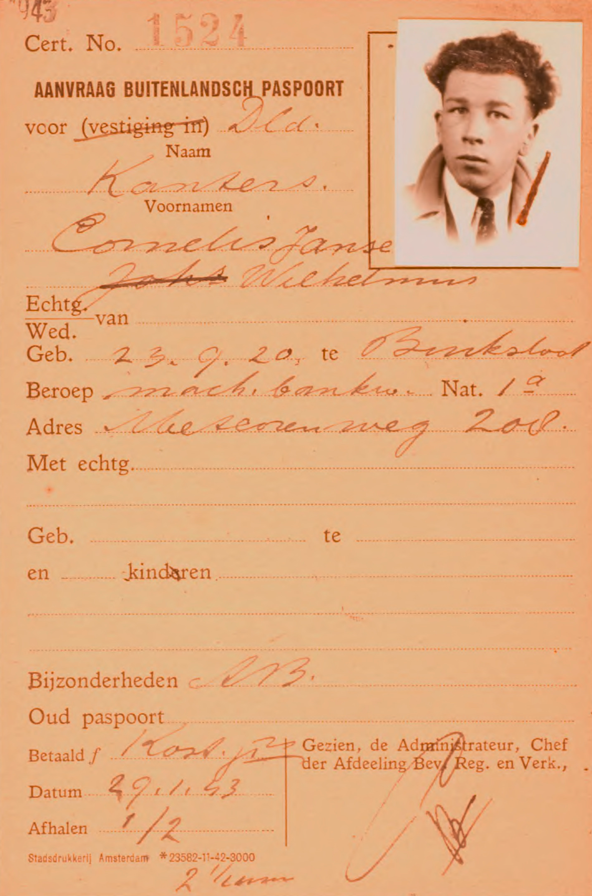 943
Cert. No. 1524
AANVRAAG BUITENLANDSCH PASPOORT
voor (vestiging in) Dld.
Naam
Kanters.
Voornamen
Cornelis Janse
Johs Wilhelmus
Echtg.
Wed. van
Geb. 23. 9. 20, te Buiksloot
Beroep mach. bankw. Nat. 1ª
Adres Meteorenweg 208.
Met echtg.
Geb. te
en kinderen
Bijzonderheden A.B.
Oud paspoort
Betaald f Kost.
Gezien, de Administrateur, Chef
der Afdeeling Bev. Reg. en Verk.,
Datum 29.1.43
Afhalen 1/2
Stadsdrukkerij Amsterdam *23582-11-42-3000